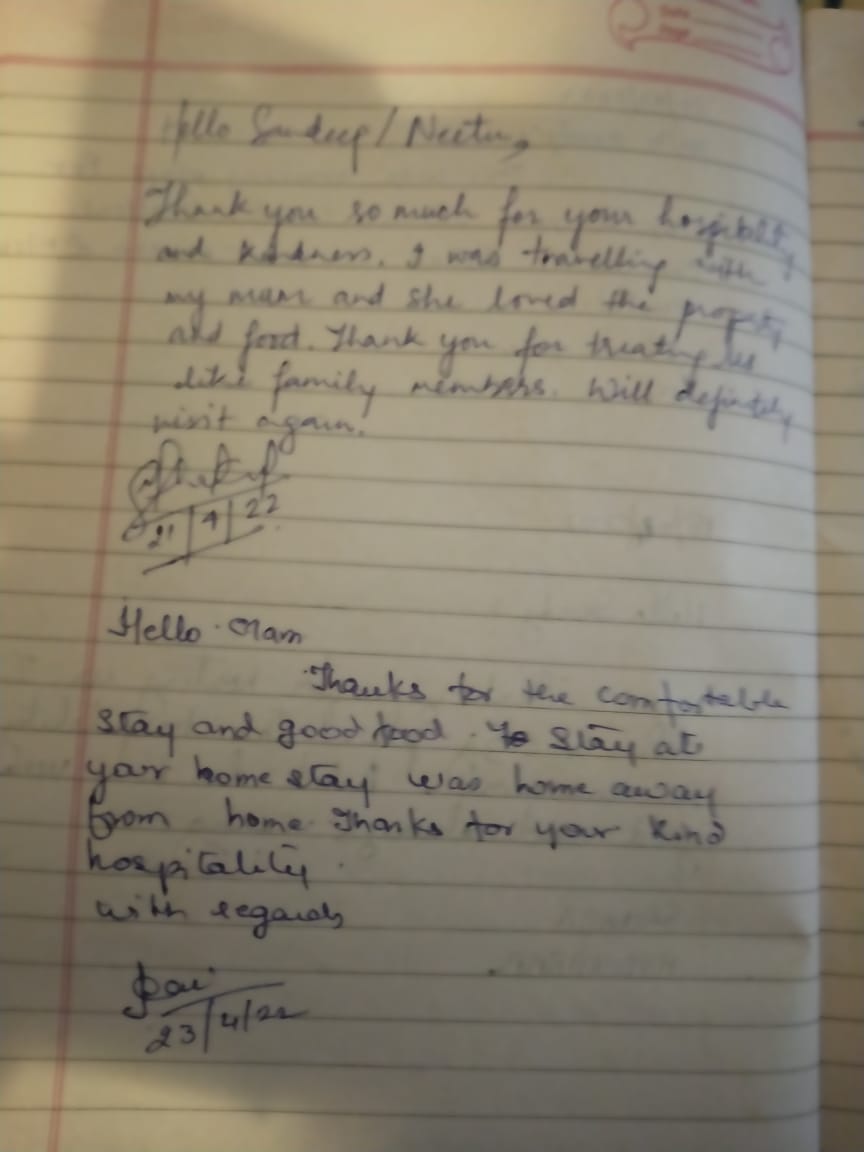 Hello Sandeep / Neetu,
Thank you so much for your hospitality
and kindness. I was travelling with
my mam and she loved the property
and food. Thank you for treating us
like family members. Will definitely
visit again.
21/4/22
Hello Mam
Thanks for the comfortable
stay and good food. To stay at
your home stay was home away
from home. Thanks for your kind
hospitality.
with regards
23/4/22